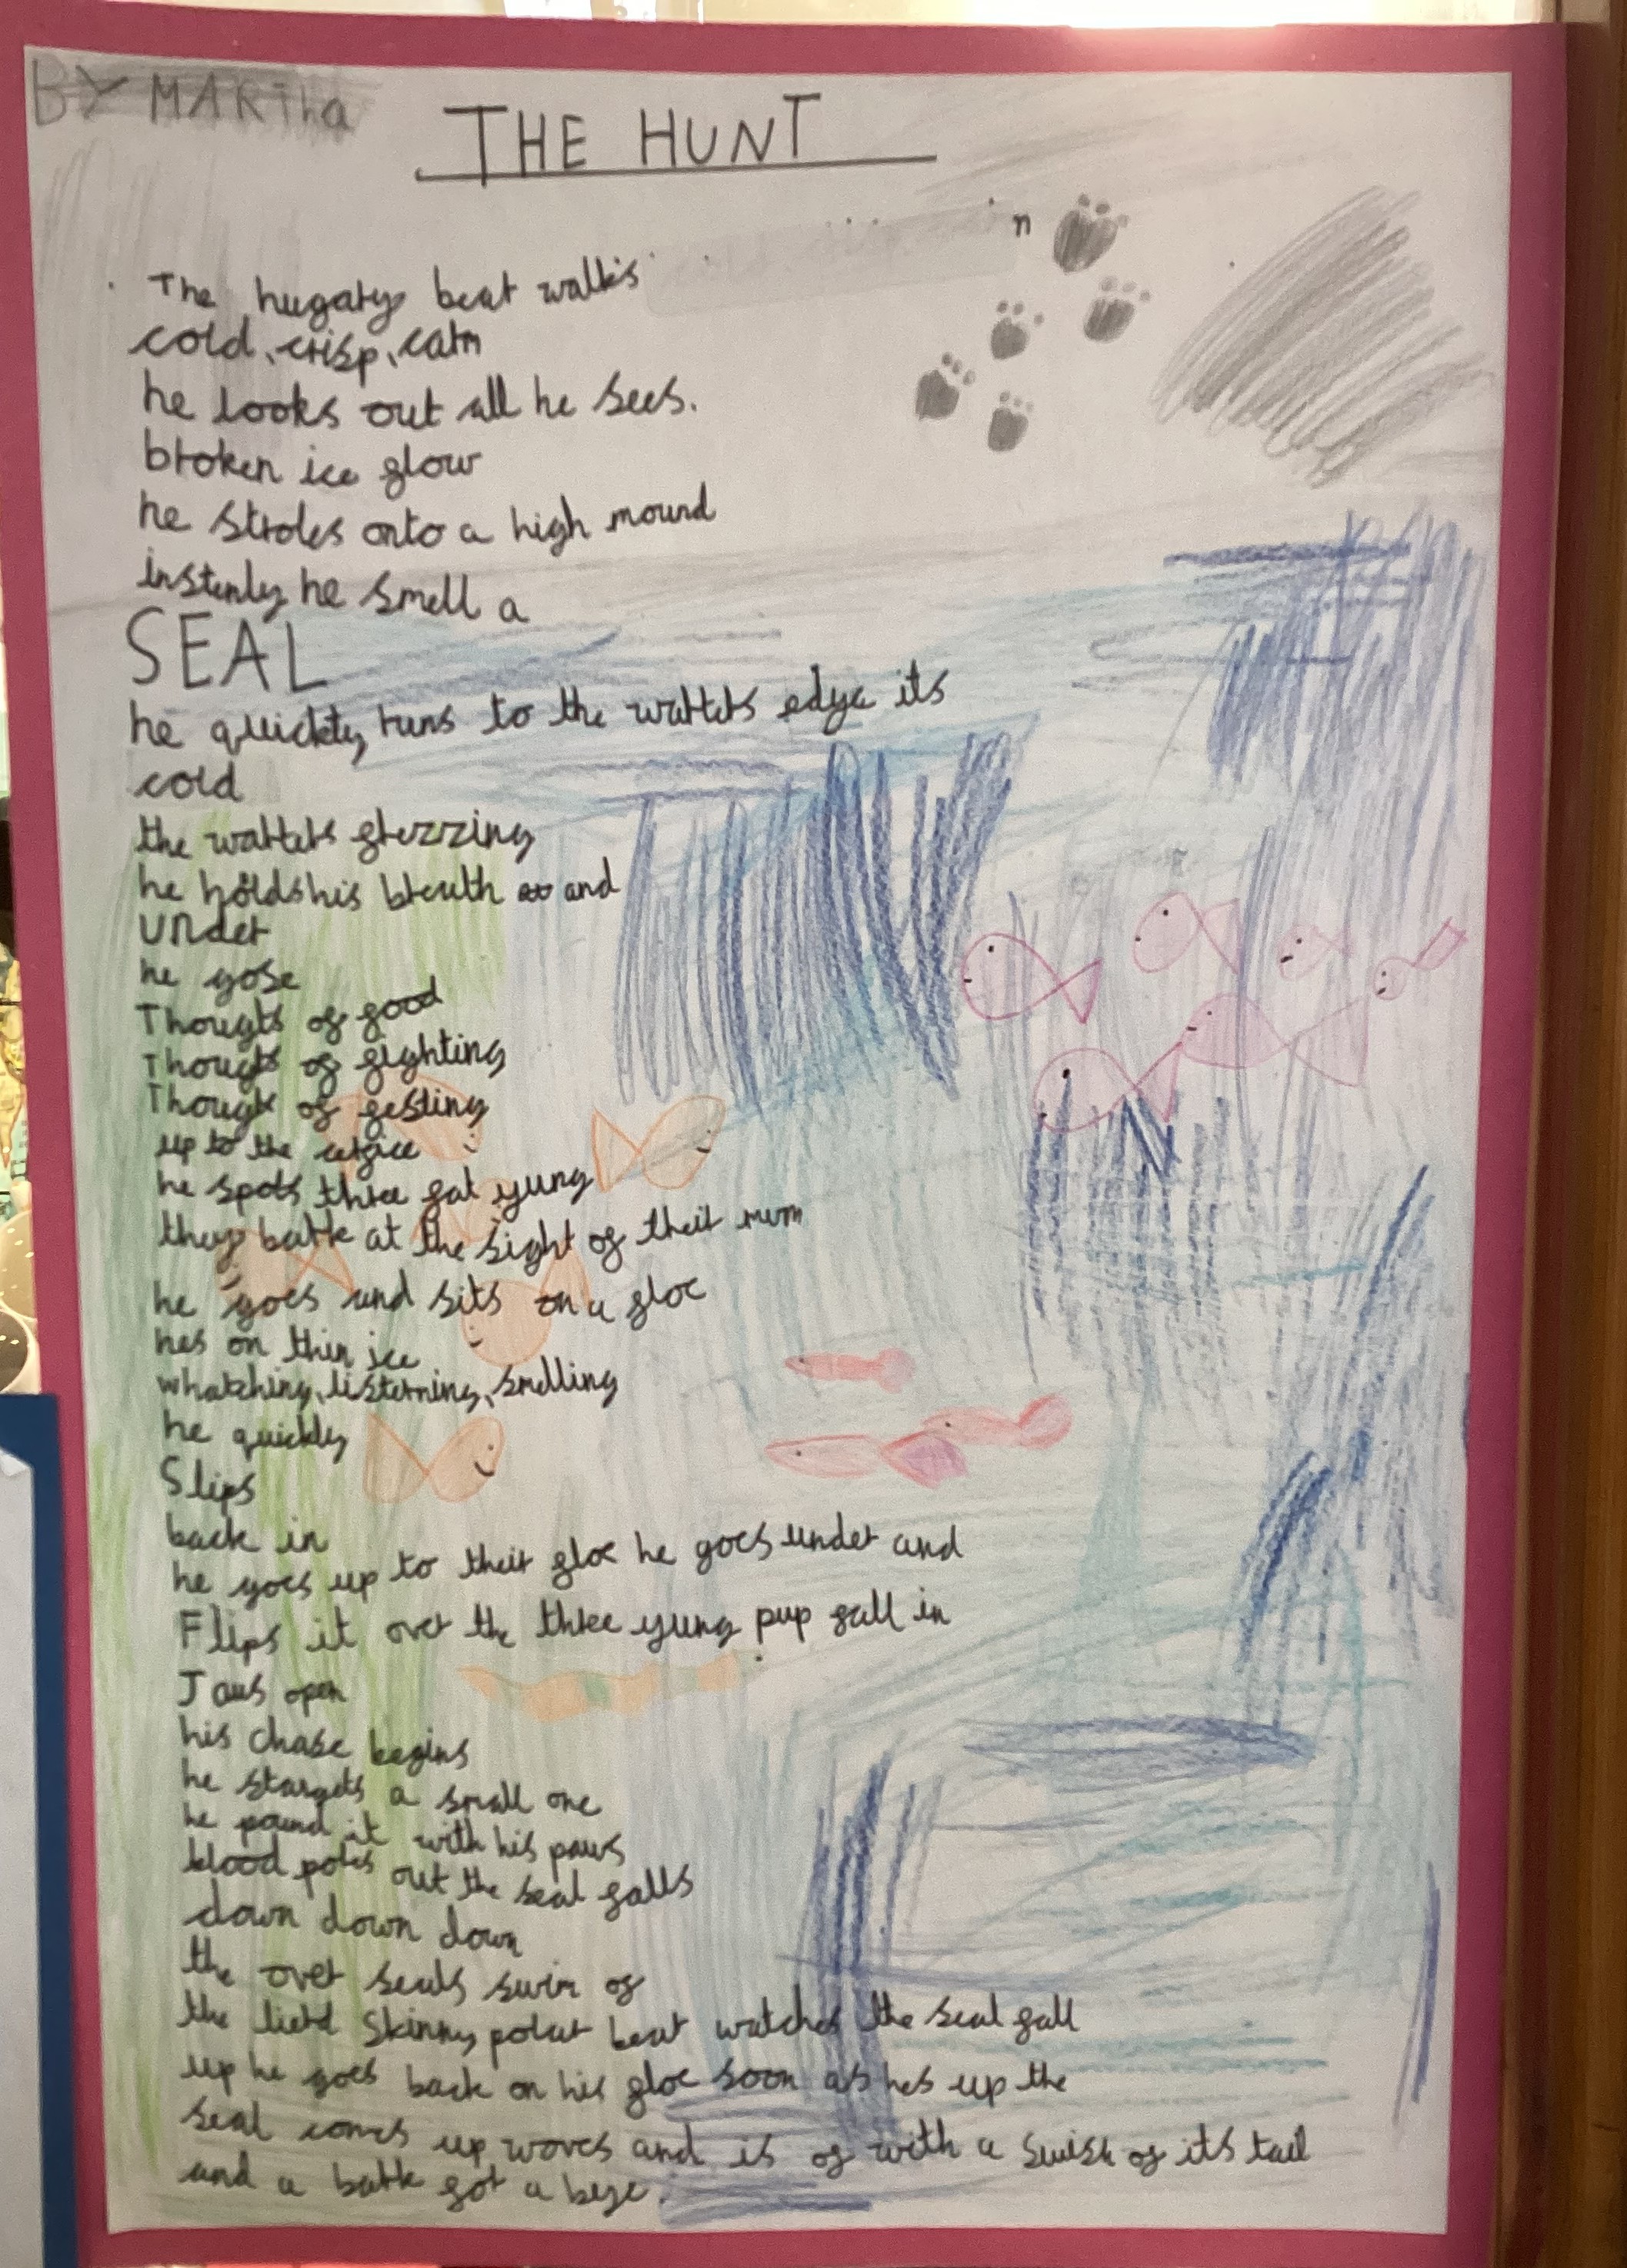 BY MARTha
THE HUNT
n
The hugary bear walks
cold, crisp, calm
he looks out all he sees.
broken ice flow
he stroles onto a high mound
instenly he smell a
SEAL
he quickly runs to the watters edge its
cold
the watters frezzing
he holds his breath and
UNder
he gose
Thougts of food
Thougts of fighting
Thougts of festing
up to the
he spots three fat yung
they bark at the sight of their mum
he goes and sits on a floe
hes on thin ice
whatching, listerning, smelling
he quickly
Slips
back in
he goes up to their floe he goes under and
Flips it over the three yung pup fall in
Jaws open
his chase begins
he stargets a small one
he pound it with his paws
blood pores out the seal falls
down down down
the over seals swim of
the tierd skinny polar bear watches the seal fall
up he goes back on his floe soon as hes up the
seal comes up woves and is of with a swish of its tail
and a bark for a bye.